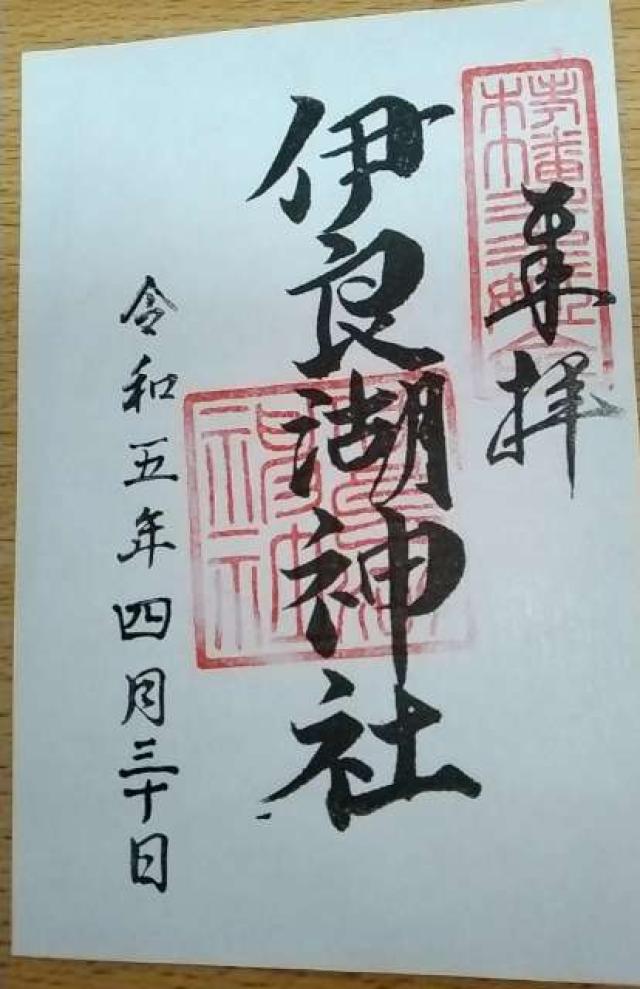 奉拝
伊良湖神社
令和五年四月三十日